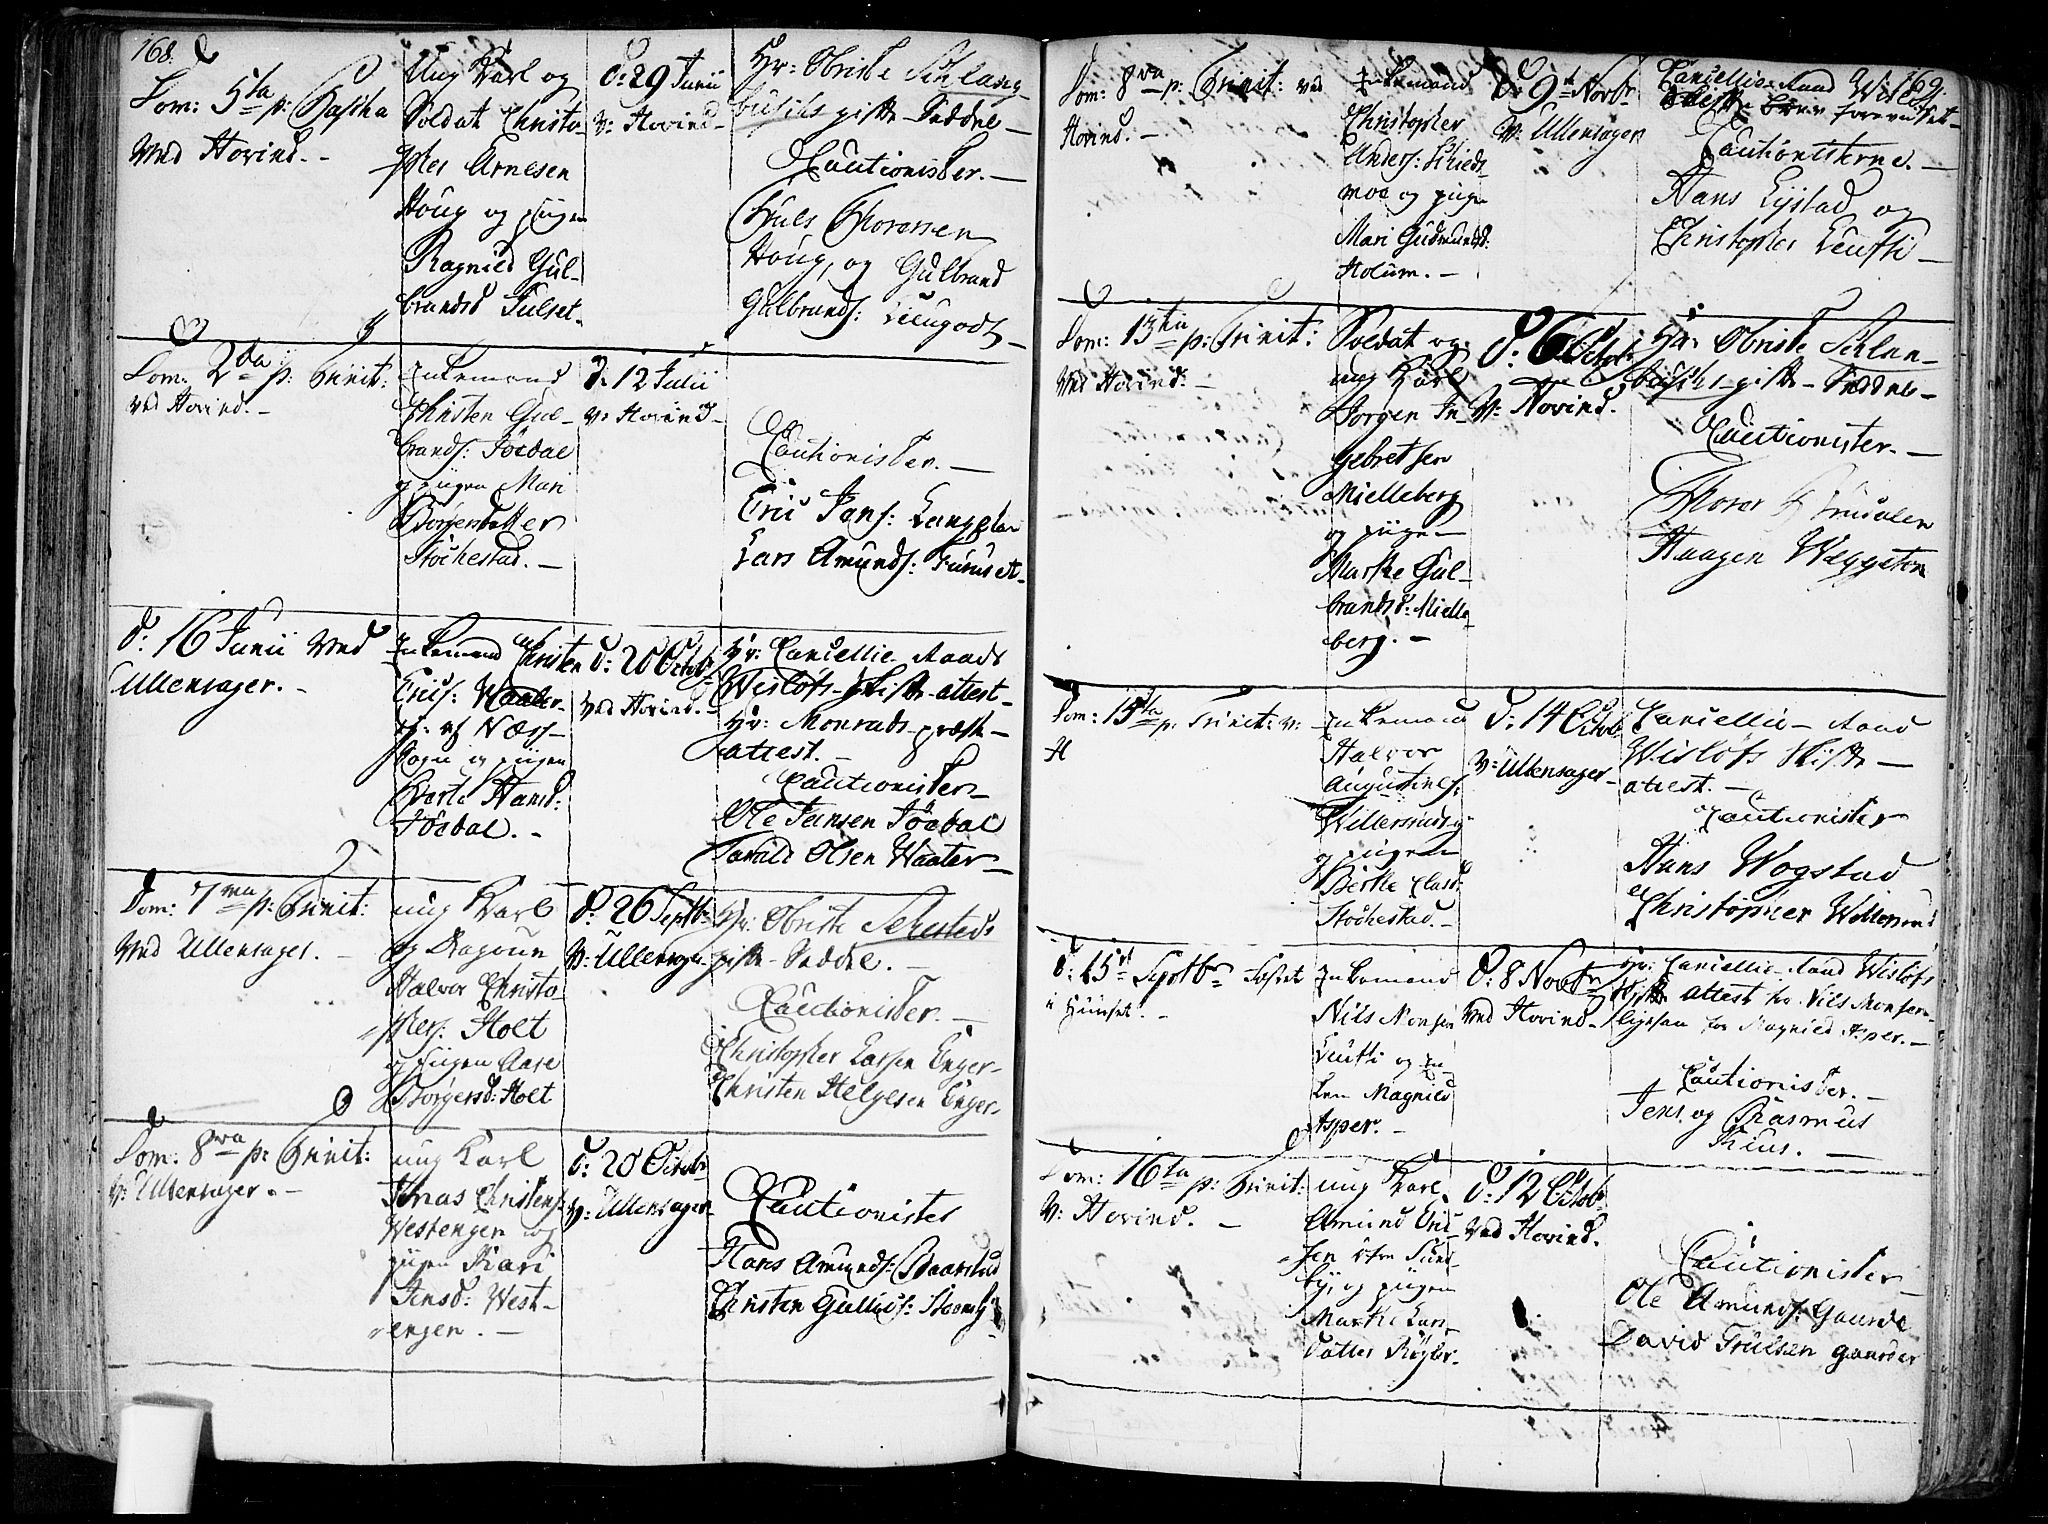 168.
Dom: 5ta p: Pascha
ved Hovind. -
Ung Karl og
Soldat Christo
pher Arnesen
Houg og pigen
Ragnild Gul-
brandsd Julset.
d: 29 Junii
v: Hovind -
Hr: Obriste Schlang-
buschs gifte-Seddel -
Cautionister. -
Thoresen
Houg, og Gulbrand
Gulbrands:
Dom: 2da p: Trinit:
ved Hovind. -
Enkemand
Christen Gul-
brands: Jödal
og pigen Mari
Borgersdatter
Stöchestad. -
d: 12 Julii
v: Hovind -
Cautionister. -
Eric Jans:
Lars Amunds: Furuset -
d: 16 Junii ved
Ullensager. -
Enkemand Christen
Erics: Waaler-
af Næss-
Sogn og pigen
Berte Hansd:
Jödal. -
d: 20 Octob:
ved Hovind. -
Hr: Cancellie-Raads
Wislöfs skifte-attest -
Hr: Monrads præste-
attest. -
Cautionister -
Ole Jensen Jödal
Olsen Waaler -
Dom: 7ma p: Trinit:
ved Ullensager. -
ung Karl
og Dragoun
Halvor Christo-
phers: Holt
og pigen Aase
Borgersd: Holt
d: 26 Septb:
v: Ullensager
Hr: Obriste Sehesteds
gifte-Seddel. -
Cautionister. -
Christopher Larsen Enger -
Christen Helgesen Enger -
Dom: 8va p: Trinit:
v: Ullensager. -
ung Karl
Jonas Christens:
Westengen og
pigen Kari
Jensd: West-
engen. -
d: 20 Octob:
v: Ullensager
Cautionister
Hans Amunds:
Christen Gullics:
169.
Dom: 8va p: Trinit: ved
Hovind. -
Enkemand
Christopher
Anders: Skieds-
moe og pigen
Mari Gudmundsd:
Holum. -
d: 9d Novbr
v: Ullensager
Cancellie-Raad Wislöfs
Cautionisterne. -
Hans Lystad og
Christopher Leufti -
Dom: 13tii p: Trinit:
ved Hovind: -
Soldat og
ung Karl
Jorgen In-
gebretsen
Mielleberg
og pigen
Marthe Gul-
brandsd: Mielle-
berg. -
d: 6 Octob:
v: Hovind.
Hr: Obriste Schlan-
buschs gifte-Seddel -
Cautionister. -
Haagen
Dom: 15ta p: Trinit: v:
H
Enkemand
Halvor
Augustines:
og pigen
Berthe
Stöchestad. -
d: 14 Octob:
v: Ullensager -
Cancellie-Raad
Wislöfs skifte-
attest. -
Cautionister
Hans Wogstad
Christopher
d: 15d Septb:
Enkemand
Nils Monsen
Leufti og En-
ken Magnild
Asper. -
d: 8 Novbr
ved Hovind -
Hr: Cancellie-Raad Wislöfs
skifte attest for Nils Monsen -
ligesaa for Magnild Asper. -
Cautionister. -
Jens og Rasmus
Dom: 16ta p: Trinit:
v: Hovind. -
ung Karl
Amund Eric-
sen
og pigen
Marthe Lars-
datter
d: 12 Octob:
ved Hovind.
Cautionister -
Ole Amunds: Gaarder
David Trulsen gaarder